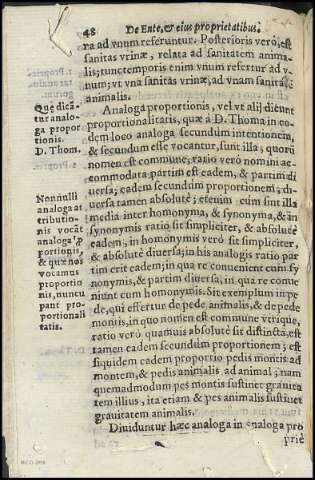 48 De Ente, & eius proprietatibus.
ra ad vnum referuntur. Posterioris verò, est
sanitas vrinæ, relata ad sanitatem anima-
lis; tunc temporis enim vnum refertur ad v-
num; vt vna sanitas vrinæ, ad vnam sanitatẽ
animalis.
Que dicã-
tur analo-
ga propor
tionis.
D. Thom.
Analoga proportionis, vel vt alij dicunt
proportionalitatis, quæ à D. Thoma in eo-
dem loco analoga secundum intentionem,
& secundum esse vocantur, sunt illa; quorũ
nomen est commune, ratio verò nomini ac-
commodata partim est eadem, & partim di
uersa; eadem secundum proportionem; di-
uersa tamen absolutè; etenim cum sint illa
media inter homonyma, & synonyma, & in
synonymis ratio sit simpliciter, & absolutè
eadem; in homonymis verò sit simpliciter,
& absolutè diuersa; in his analogis ratio par
tim erit eadem; in qua re conuenient cum sy
nonymis, & partim diuersa, in qua re conue
niunt cum homonymis. Sit exemplum in pe
de, qui effertur de pede animalis, & de pede
montis, in quo nomen est commune vtrique,
ratio verò quamuis absolutè sit distincta, est
tamen eadem secundum proportionem; est
siquidem eadem proportio pedis montis ad
montem, & pedis animalis ad animal; nam
quemadmodum pes montis sustinet grauita
tem illius, ita etiam & pes animalis sustinet
grauitatem animalis.
Nonnulli
analoga at
tributio-
nis vocãt
analoga p̃
portionis,
& quæ nos
vocamus
proportio
nis, nuncu
pant pro-
portionali
tatis.
Diuiduntur hæc analoga in analoga pro
priè